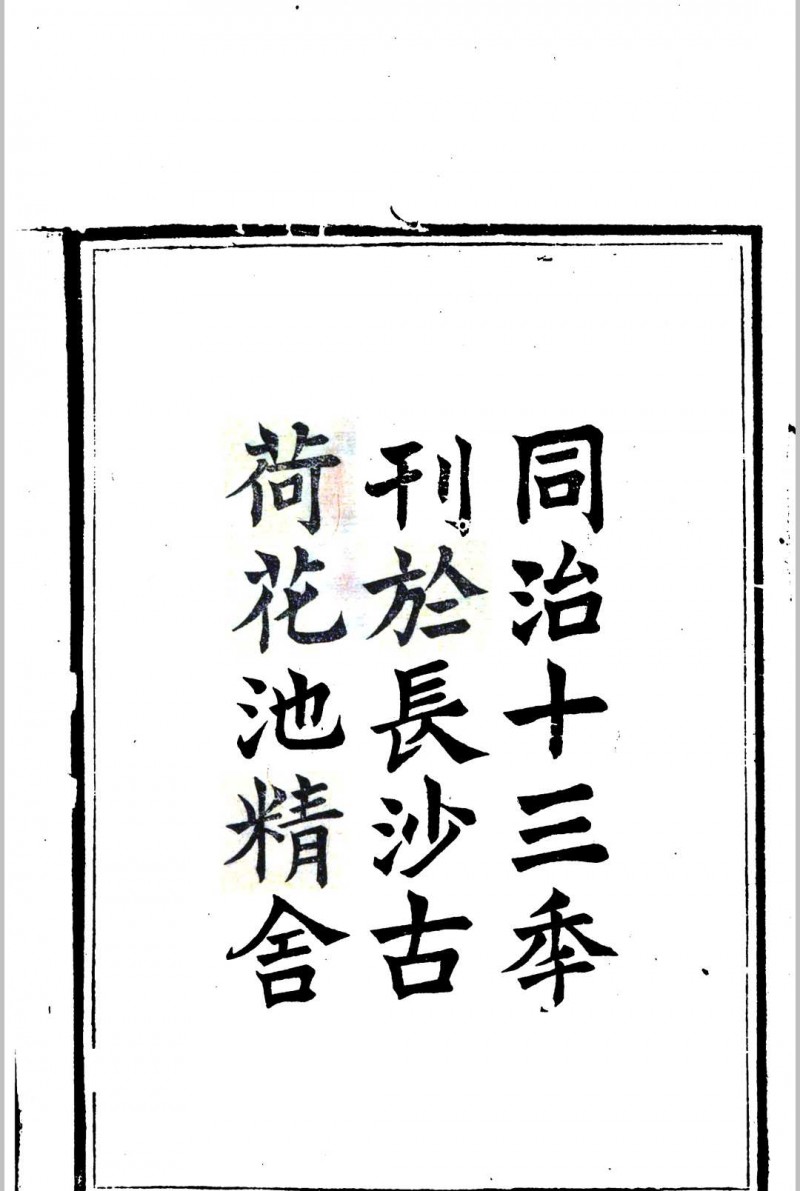 同治十三秊
刊於長沙古
荷花池精舍